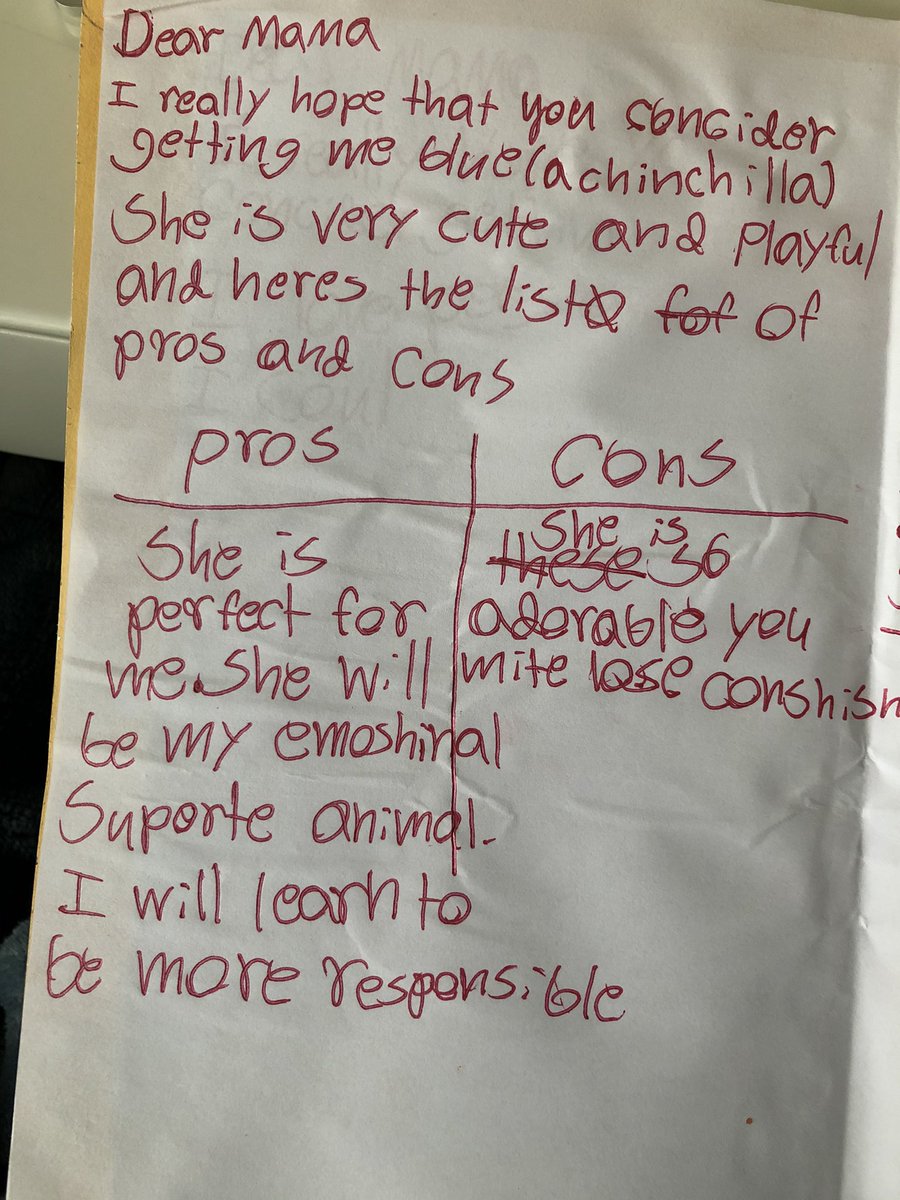 Dear Mama
I really hope that you concider
getting me blue (a chinchilla)
She is very cute and playful
and heres the list of
pros and cons
pros
cons
She is
perfect for
me. She will
be my emoshinal
suporte animal.
I will learn to
be more responsible
She is
so
adorable you
mite lose conshish